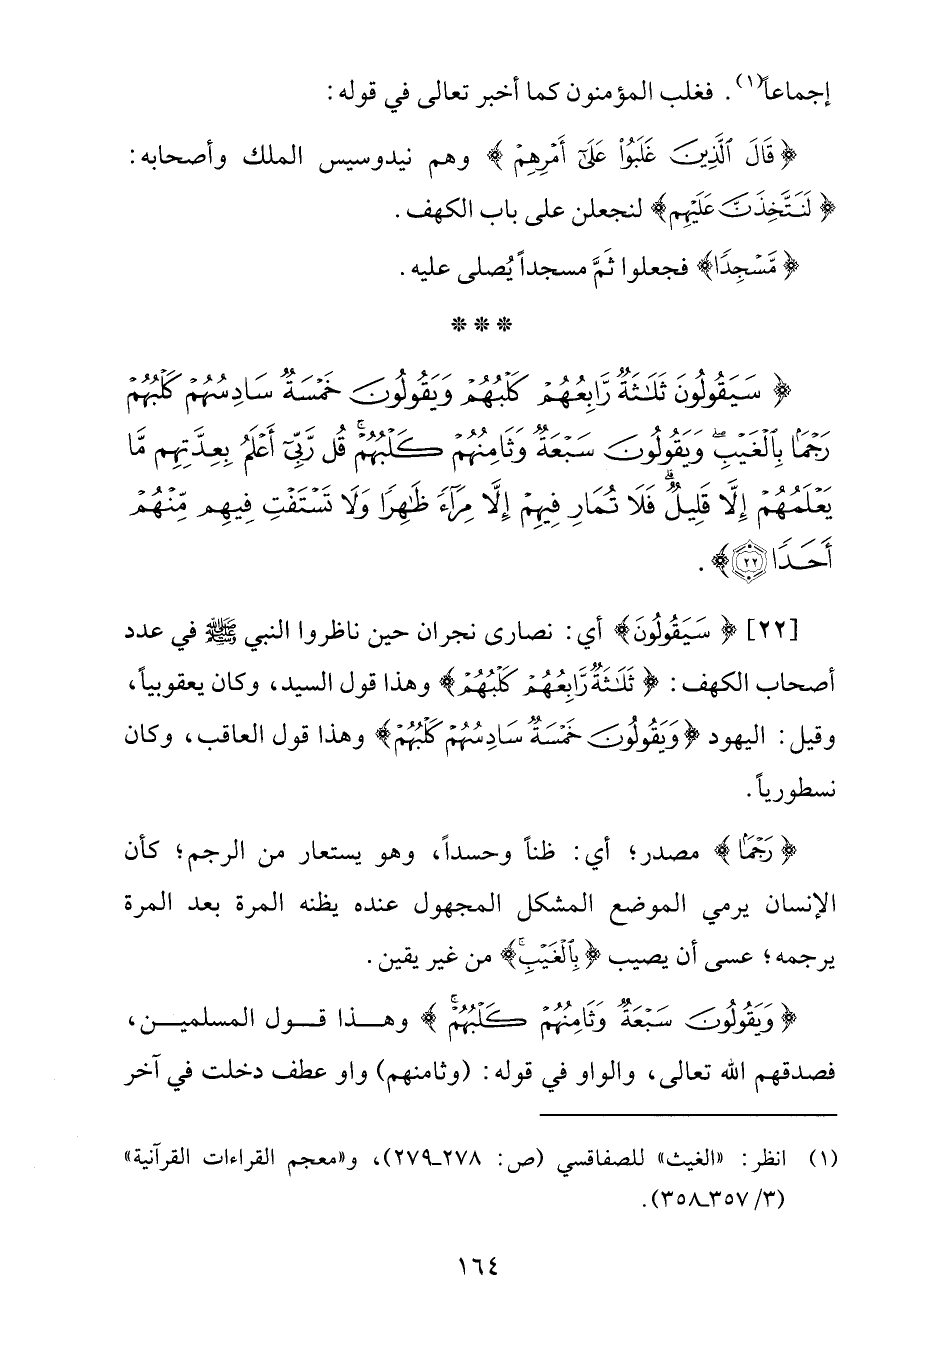 إجماعاً(١). فغلب المؤمنون كما أخبر تعالى في قوله:
﴿قَالَ ٱلَّذِينَ غَلَبُوا۟ عَلَىٰٓ أَمْرِهِمْ﴾ وهم نيدوسيس الملك وأصحابه:
﴿لَنَتَّخِذَنَّ عَلَيْهِم﴾ لنجعلن على باب الكهف.
﴿مَّسْجِدًا﴾ فجعلوا ثَمَّ مسجداً يُصلى عليه.
***
﴿سَيَقُولُونَ ثَلَٰثَةٌ رَّابِعُهُمْ كَلْبُهُمْ وَيَقُولُونَ خَمْسَةٌ سَادِسُهُمْ كَلْبُهُمْ
رَجْمًۢا بِٱلْغَيْبِ ۖ وَيَقُولُونَ سَبْعَةٌ وَثَامِنُهُمْ كَلْبُهُمْ ۚ قُل رَّبِّىٓ أَعْلَمُ بِعِدَّتِهِم مَّا
يَعْلَمُهُمْ إِلَّا قَلِيلٌ ۗ فَلَا تُمَارِ فِيهِمْ إِلَّا مِرَآءً ظَٰهِرًا وَلَا تَسْتَفْتِ فِيهِم مِّنْهُمْ
أَحَدًا ٢٢﴾.
[٢٢] ﴿سَيَقُولُونَ﴾ أي: نصارى نجران حين ناظروا النبي ﷺ في عدد
أصحاب الكهف: ﴿ثَلَٰثَةٌ رَّابِعُهُمْ كَلْبُهُمْ﴾ وهذا قول السيد، وكان يعقوبياً،
وقيل: اليهود ﴿وَيَقُولُونَ خَمْسَةٌ سَادِسُهُمْ كَلْبُهُمْ﴾ وهذا قول العاقب، وكان
نسطورياً.
﴿رَجْمًۢا﴾ مصدر؛ أي: ظناً وحسداً، وهو يستعار من الرجم؛ كأن
الإنسان يرمي الموضع المشكل المجهول عنده يظنه المرة بعد المرة
يرجمه؛ عسى أن يصيب ﴿بِٱلْغَيْبِ ۚ﴾ من غير يقين.
﴿وَيَقُولُونَ سَبْعَةٌ وَثَامِنُهُمْ كَلْبُهُمْ ۚ﴾ وهذا قول المسلمين،
فصدقهم الله تعالى، والواو في قوله: (وثامنهم) واو عطف دخلت في آخر
(١) انظر: «الغيث» للصفاقسي (ص: ٢٧٨ـ٢٧٩)، و«معجم القراءات القرآنية»
(٣/ ٣٥٧ـ٣٥٨).
١٦٤